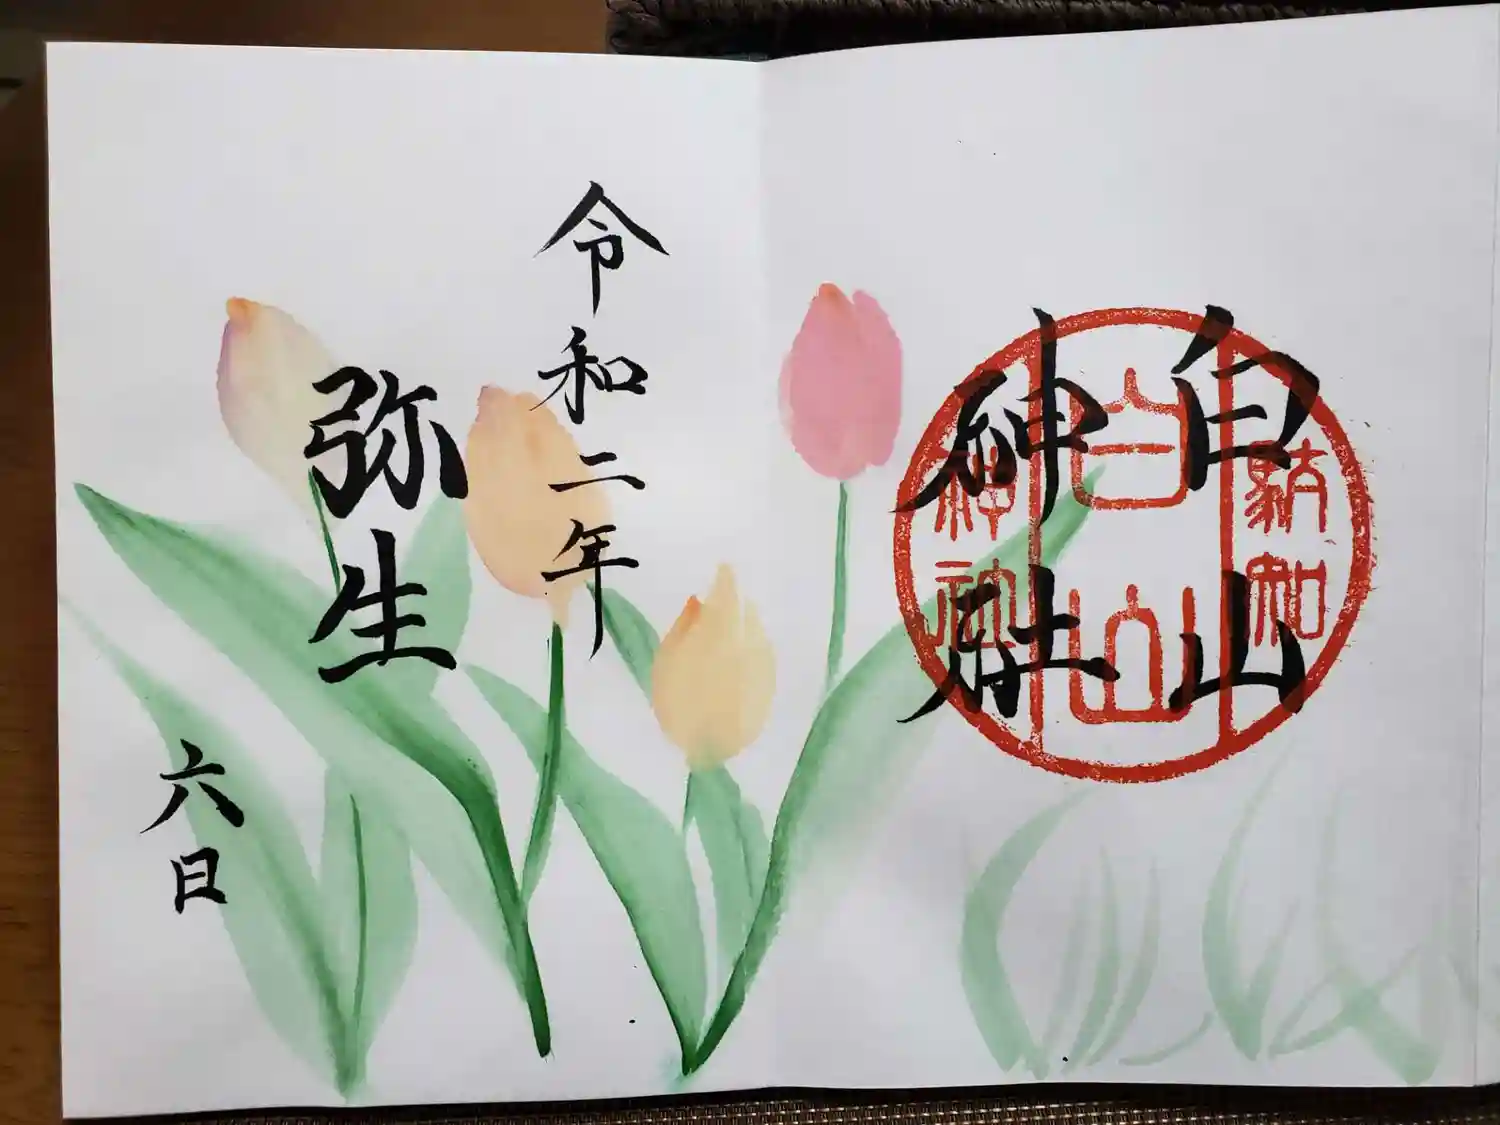 白山
神社
駄知
白山
神社
令和二年
弥生
六日